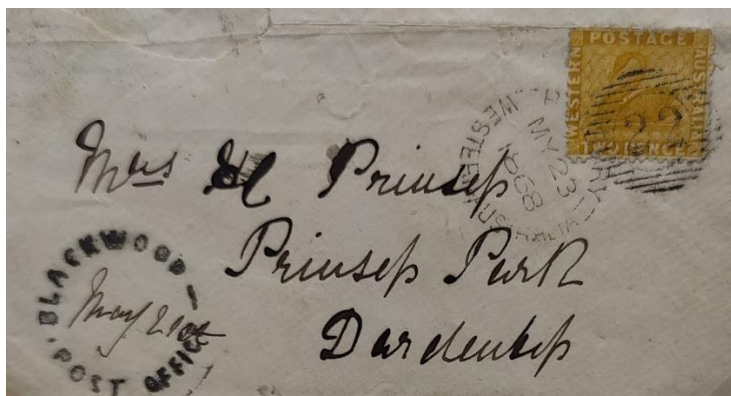 POSTAGE
WESTERN
AUSTRALIA
TWO PENCE
WESTERN AUSTRALIA
MY 23
1868
Mrs H Prinsep
Prinsep Park
Dardenup
BLACKWOOD
May 21st
POST OFFICE